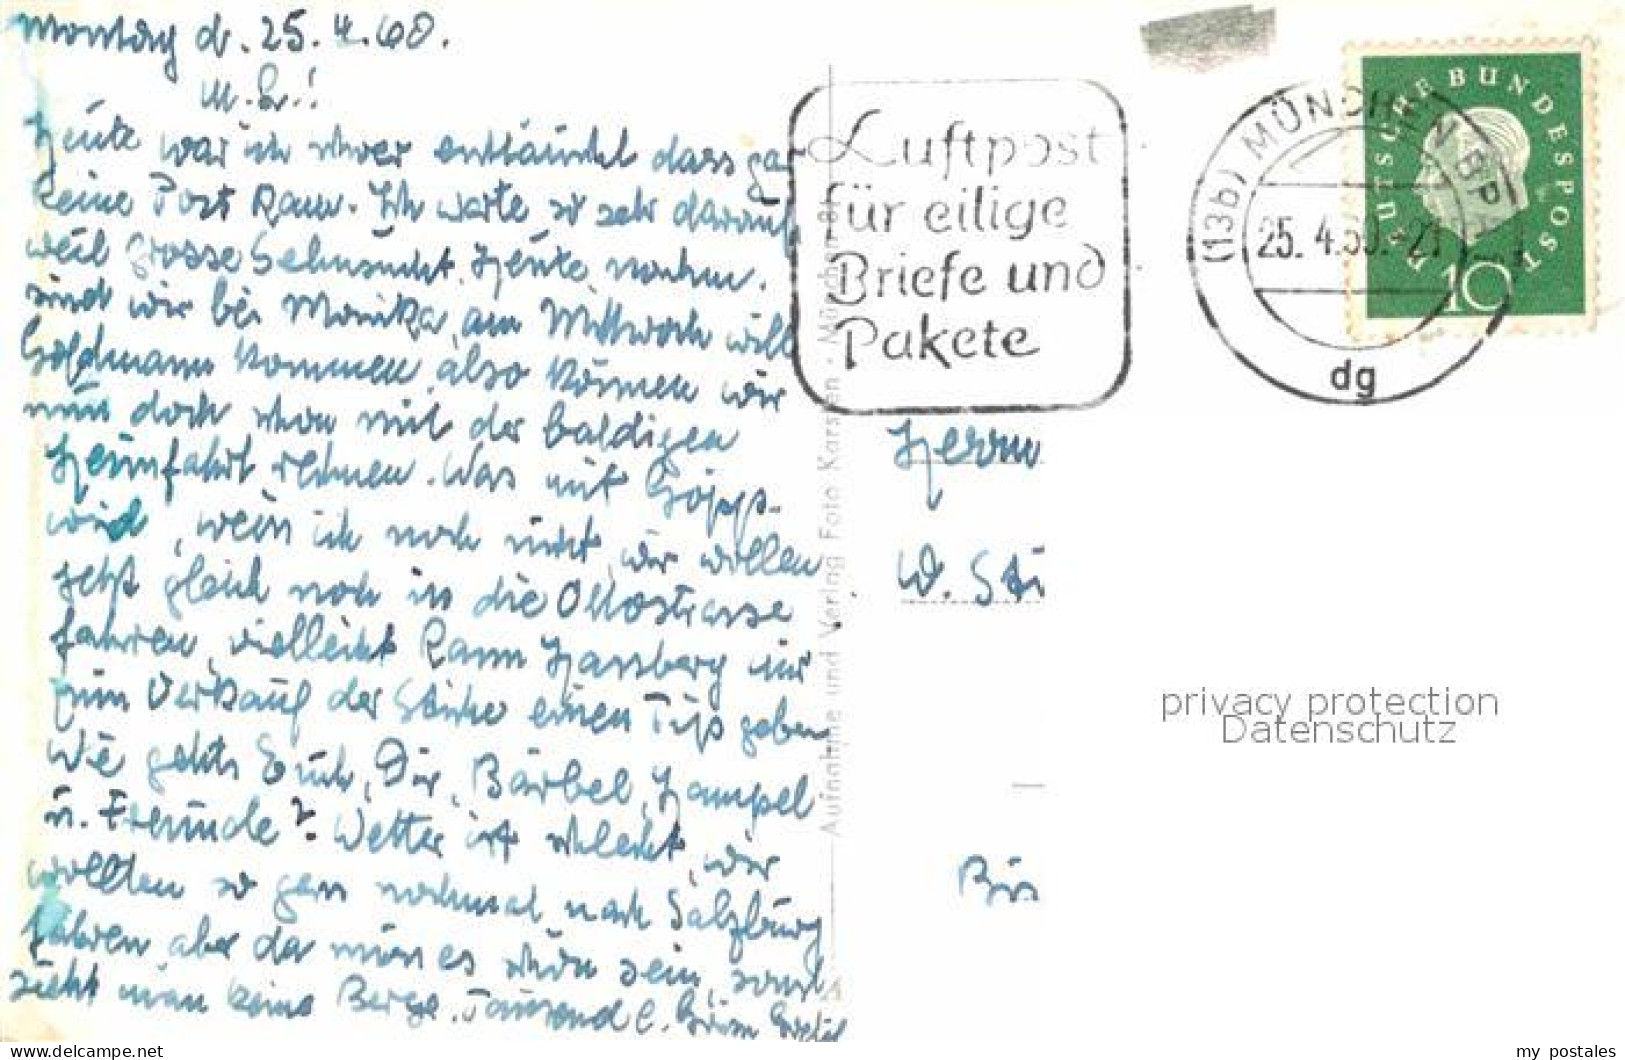 Montag d. 25.4.60.
M. L.!
Heute war ich schwer enttäuscht dass gar
keine Post kam. Ich warte so sehr darauf
weil grosse Sehnsucht. Heute nachm.
sind wir bei Monika, am Mittwoch will
Goldmann kommen, also können wir
nun doch schon mit der baldigen
Heimfahrt rechnen. Was mit Göpp.
wird, weiss ich noch nicht, wir wollen
jetzt gleich noch in die Ottostrasse
fahren, vielleicht kann Harsberg mir
zum Verkauf der Stücke einen Tip geben
Wie gehts Euch, Dir, Bärbel, Hampel
u. Freunde? Wetter ist schlecht, wir
wollten so gern nochmal nach Salzburg
fahren aber da muss es schön sein, sonst
sieht man keine Berge. Tausend l.
Luftpost
für eilige
Briefe und
Pakete
(13b) MÜNCHEN BP
25.4.60.-21
dg
DEUTSCHE BUNDESPOST
10
Aufnahme und Verlag Foto Karsten · München
Herrn
W. Stü
privacy protection
Datenschutz
www.delcampe.net
my_postales